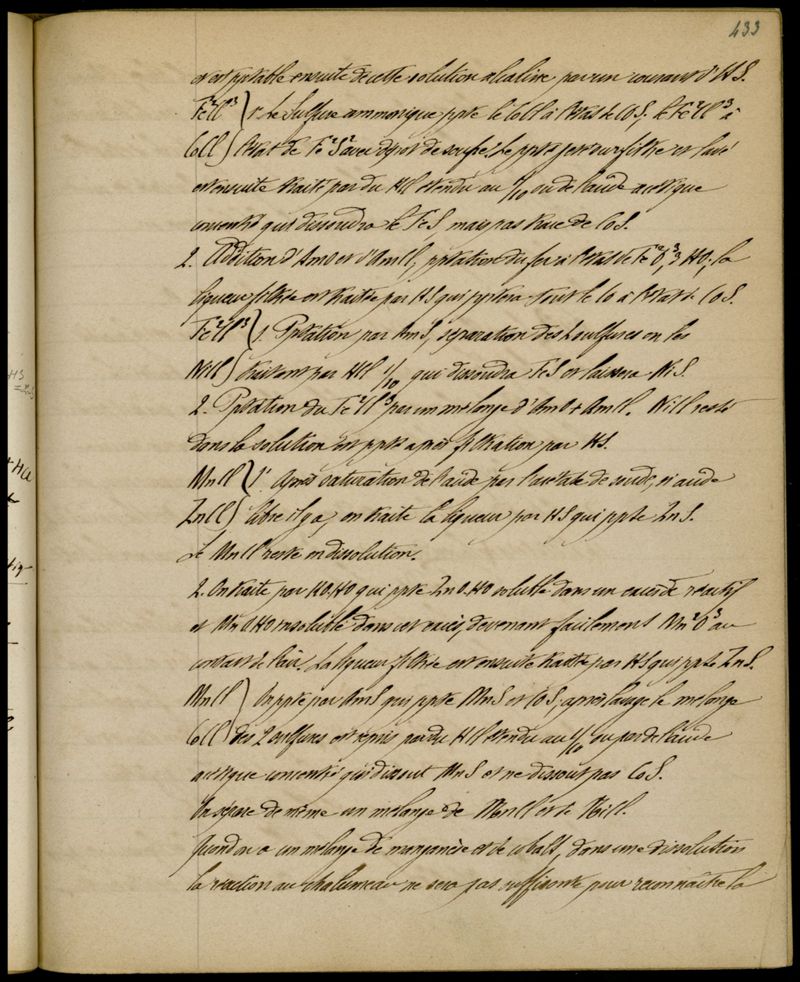 433
est pptable ensuite de cette solution alcaline par un courant d'HS.
Fe²Cl³ } 1º Le Sulfure ammonique ppte le CoCl à l'état de CoS, le Fe²Cl³ à
CoCl } l'état de Fe²S² avec dépôt de soufre. Le ppté jeté sur filtre et lavé
est ensuite traité par du HCl étendu au 1/10 ou de l'acide acétique
concentré qui dissoudra le FeS, mais pas trace de CoS.
2. Addition d'AmO et d'AmCl, pptation du fer à l'état de Fe²O³, 3HO, la
liqueur filtrée est traitée par HS qui pptera tout le Co à l'état de CoS.
Fe²Cl³ } 1. Pptation par AmS, séparation des 2 sulfures en les
NiCl } traitant par HCl 1/10 qui dissoudra FeS et laissera NiS.
2. Pptation du Fe²Cl³ par un mélange d'AmO + AmCl. NiCl reste
dans la solution et ppté après filtration par HS.
MnCl } 1º Après saturation de l'acide par l'acétate de soude, si acide
ZnCl } libre il y a, on traite la liqueur par HS qui ppte ZnS.
Le MnCl reste en dissolution.
2. On traite par KO,HO qui ppte ZnO,HO soluble dans un excès de réactif
et MnO,HO insoluble dans cet excès, devenant facilement Mn²O³ au
contact de l'air. La liqueur filtrée est ensuite traitée par HS qui ppte ZnS.
MnCl } On ppte par AmS qui ppte MnS et CoS, après lavage le mélange
CoCl } des 2 sulfures est repris par du HCl étendu au 1/10 ou par de l'acide
acétique concentré qui dissout MnS et ne dissout pas CoS.
On sépare de même un mélange de MnCl et de NiCl.
Quand on a un mélange de manganèse et de cobalt, dans une dissolution
la réaction au chalumeau ne sera pas suffisante pour reconnaître la